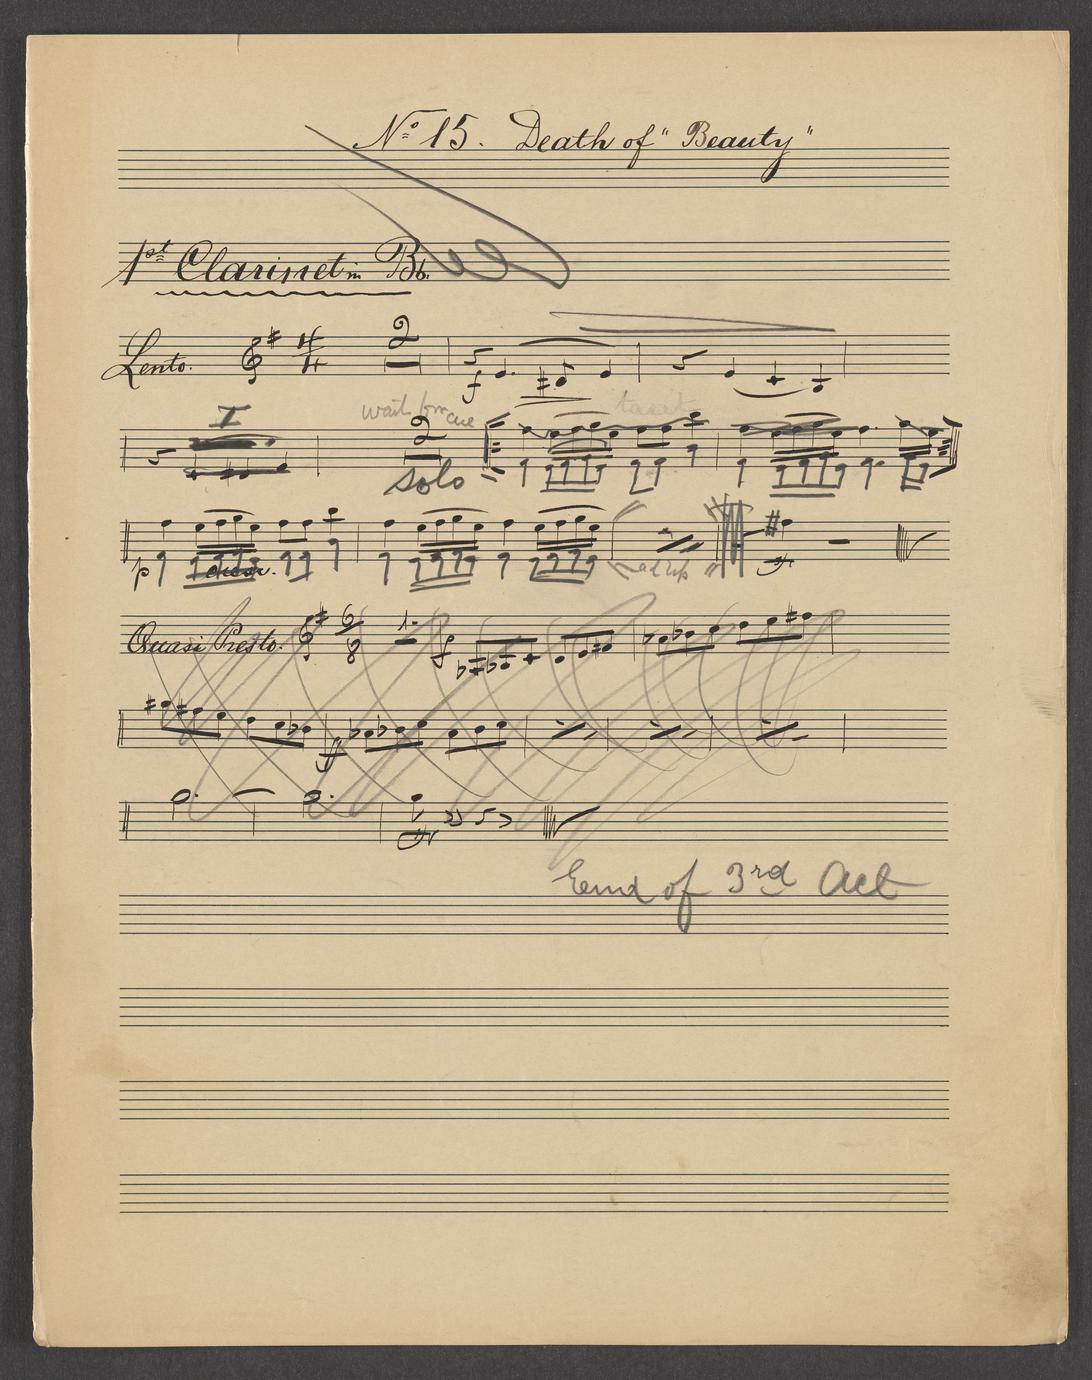 No 15. Death of "Beauty"
1st Clarinet in Bb.
Lento. 4/4 2
f
I wait for cue 2 tacet
solo
p ad lib
Quasi Presto. 6/8 1. f
ff
End of 3rd Act